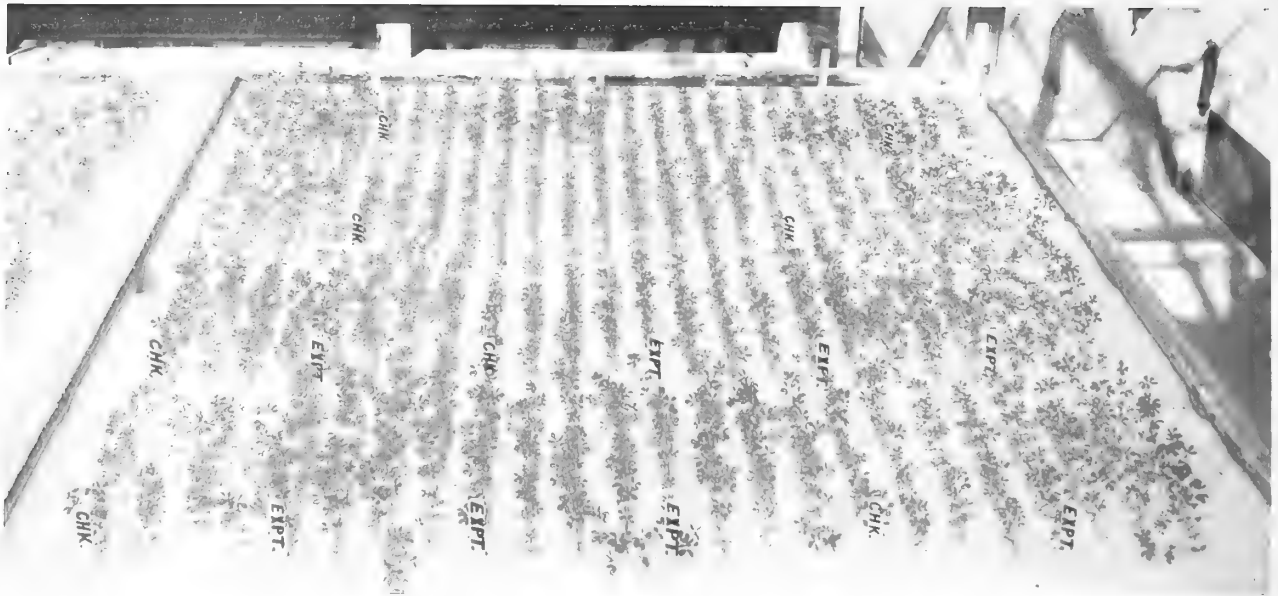 CHK
CHK
CHK
CHK
CHK.
EXPT
CHK
EXPT.
EXPT
EXPT.
CHK.
EXPT.
EXPT.
EXPT.
CHK.
EXPT.